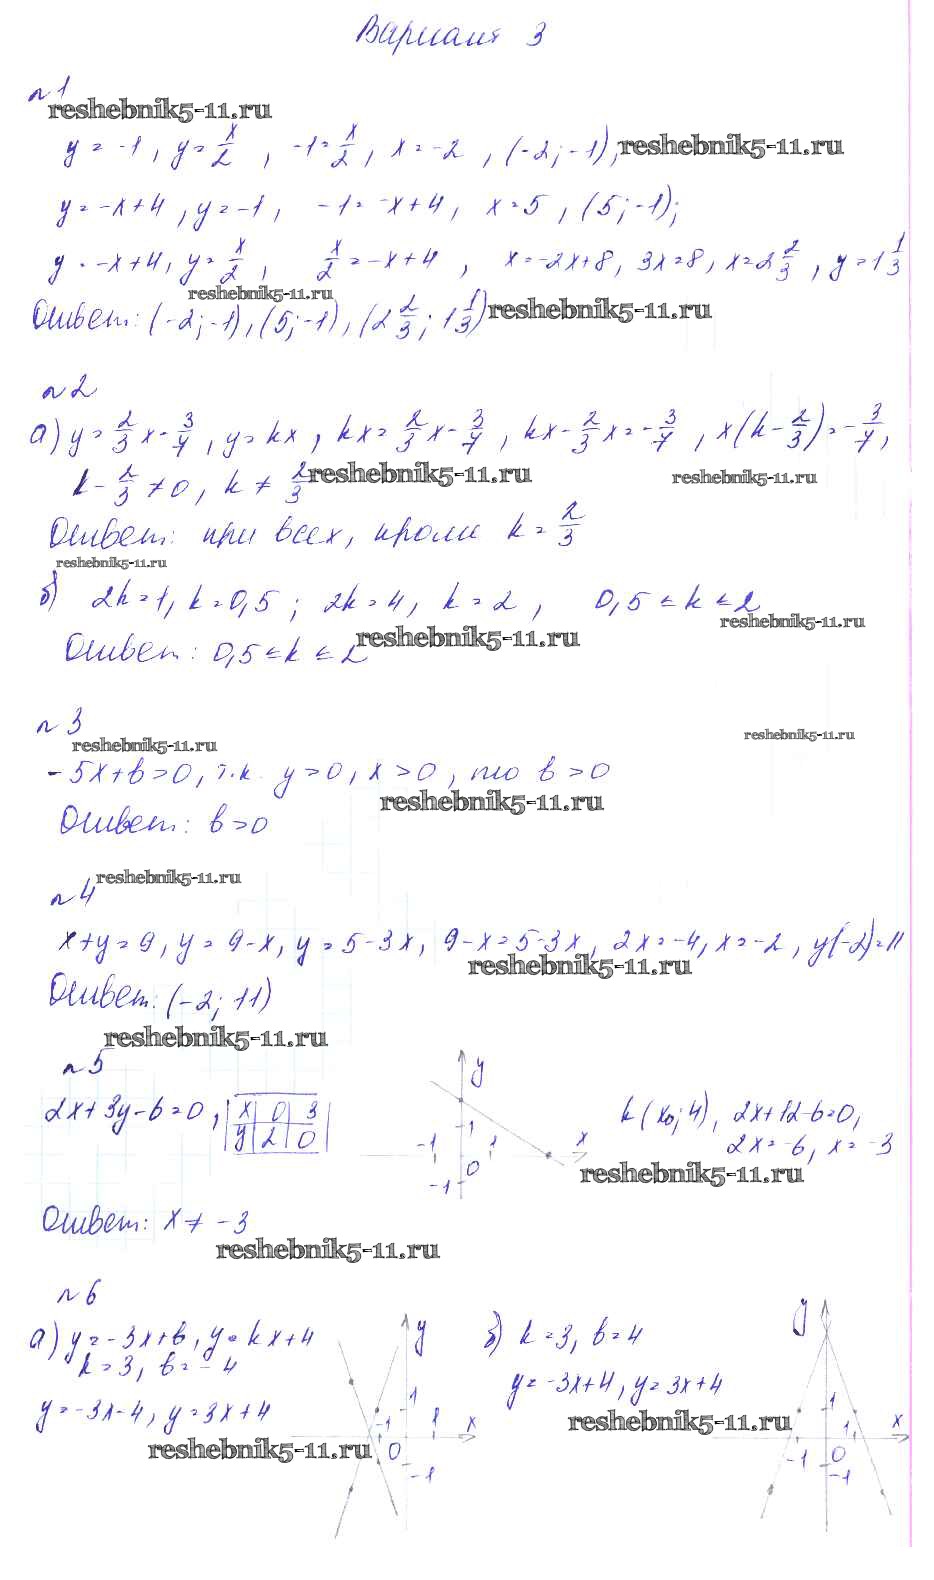 Вариант 3
№1
reshebnik5-11.ru
y = -1, y = x/2, -1 = x/2, x = -2, (-2; -1), reshebnik5-11.ru
y = -x+4, y = -1, -1 = -x+4, x = 5, (5; -1);
y = -x+4, y = x/2, x/2 = -x+4, x = -2x+8, 3x = 8, x = 2 2/3, y = 1 1/3
reshebnik5-11.ru
Ответ: (-2; -1), (5; -1), (2 2/3; 1 1/3) reshebnik5-11.ru
№2
а) y = 2/3 x - 3/7, y = kx, kx = 2/3 x - 3/7, kx - 2/3 x = -3/7, x(k - 2/3) = -3/7,
k - 2/3 ≠ 0, k ≠ 2/3 reshebnik5-11.ru reshebnik5-11.ru
Ответ: при всех, кроме k = 2/3
reshebnik5-11.ru
б) 2k = 1, k = 0,5; 2k = 4, k = 2, 0,5 ≤ k ≤ 2
reshebnik5-11.ru
reshebnik5-11.ru
Ответ: 0,5 ≤ k ≤ 2
№3
reshebnik5-11.ru reshebnik5-11.ru
-5x+b>0, т.к. y>0, x>0, то b>0
reshebnik5-11.ru
Ответ: b>0
reshebnik5-11.ru
№4
x+y = 9, y = 9-x, y = 5-3x, 9-x = 5-3x, 2x = -4, x = -2, y(-2) = 11
reshebnik5-11.ru
Ответ: (-2; 11)
reshebnik5-11.ru
№5
2x+3y-6=0, x 0 3
y 2 0
y
1
-1 1 x
0
-1
k(x₀; 4), 2x+12-6=0,
2x = -6, x = -3
reshebnik5-11.ru
Ответ: x ≠ -3
reshebnik5-11.ru
№6
а) y = -3x+b, y = kx+4
k = 3, b = -4
y = -3x-4, y = 3x+4
reshebnik5-11.ru
y
1
-1 1 x
0
-1
б) k = 3, b = 4
y = -3x+4, y = 3x+4
reshebnik5-11.ru
y
1
1 x
-1 0
-1